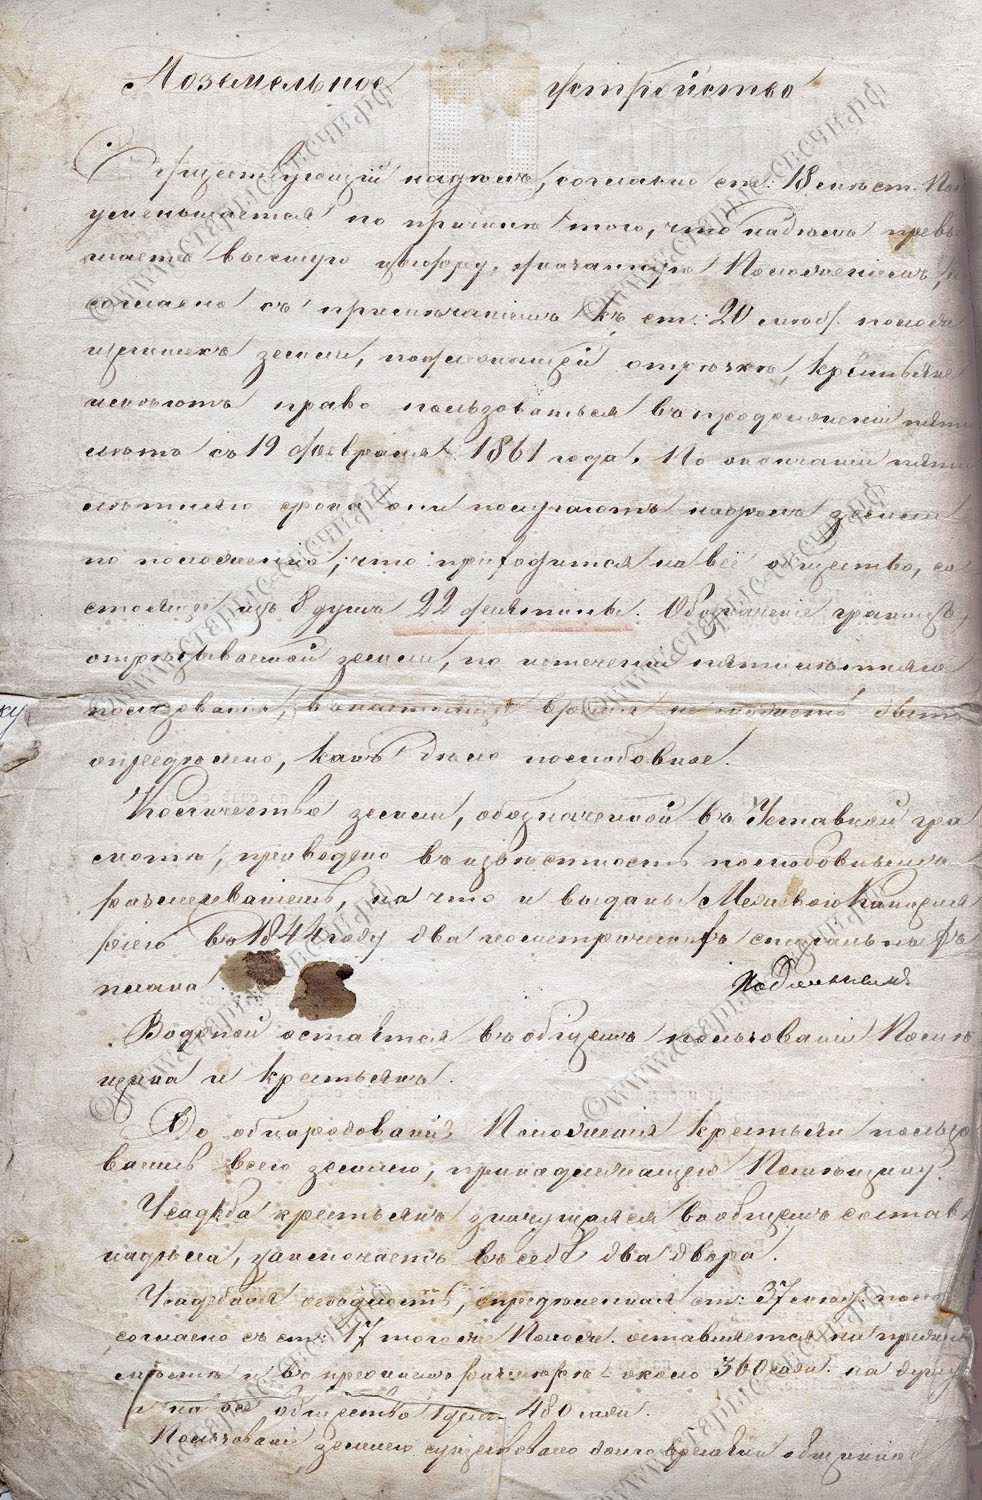 Поземельное устройство
Существующій надѣлъ, согласно ст: 18 мѣст. Пол
уменьшается по причинѣ того, что надѣлъ превы
шаетъ высшую цифру, указанную Положеніемъ,
согласно съ примѣчаніемъ къ ст: 20
земли, подлежащей отрѣзкѣ, крестьяне
имѣютъ право пользоваться въ продолженіи пяти
лѣтъ съ 19 Февраля 1861 года. По окончаніи пяти
лѣтняго срока они получаютъ надѣлъ земли
по положенію, что приходится на всё общество, со
стоящее изъ 8 душъ 22 десятины. Обозначеніе границъ,
отрѣзываемой земли, по истеченіи пятилѣтняго
пользованія, въ настоящее время не можетъ быть
опредѣлено, какъ дѣло полюбовное.
Количество земли, обозначенной въ Уставной гра
мотѣ, приведено въ извѣстность полюбовнымъ
размежеваніемъ, на что и выданы Межевою Канцеля
ріею въ 1844 году два геометрическихъ спеціальныхъ
плана.
Водопой остается въ общемъ пользованіи Помѣ
щика и крестьянъ.
До обнародованія Положенія крестьяне пользо
вались всею землею, принадлежащею Помѣщику.
Усадьба крестьянъ значущаяся въ общемъ составѣ
надѣла, заключаетъ въ себѣ два двора.
Усадебная осѣдлость, опредѣленная ст: 37
согласно съ ст: 17 того же Полож. оставляется на прежнемъ
мѣстѣ и въ прежнемъ размѣрѣ – около 360 саж. на душу
и на все общество 1 дес. 480 саж.
Пользованіе землею существовало до сего времени общинное
©www.старыс-свсчи.рф